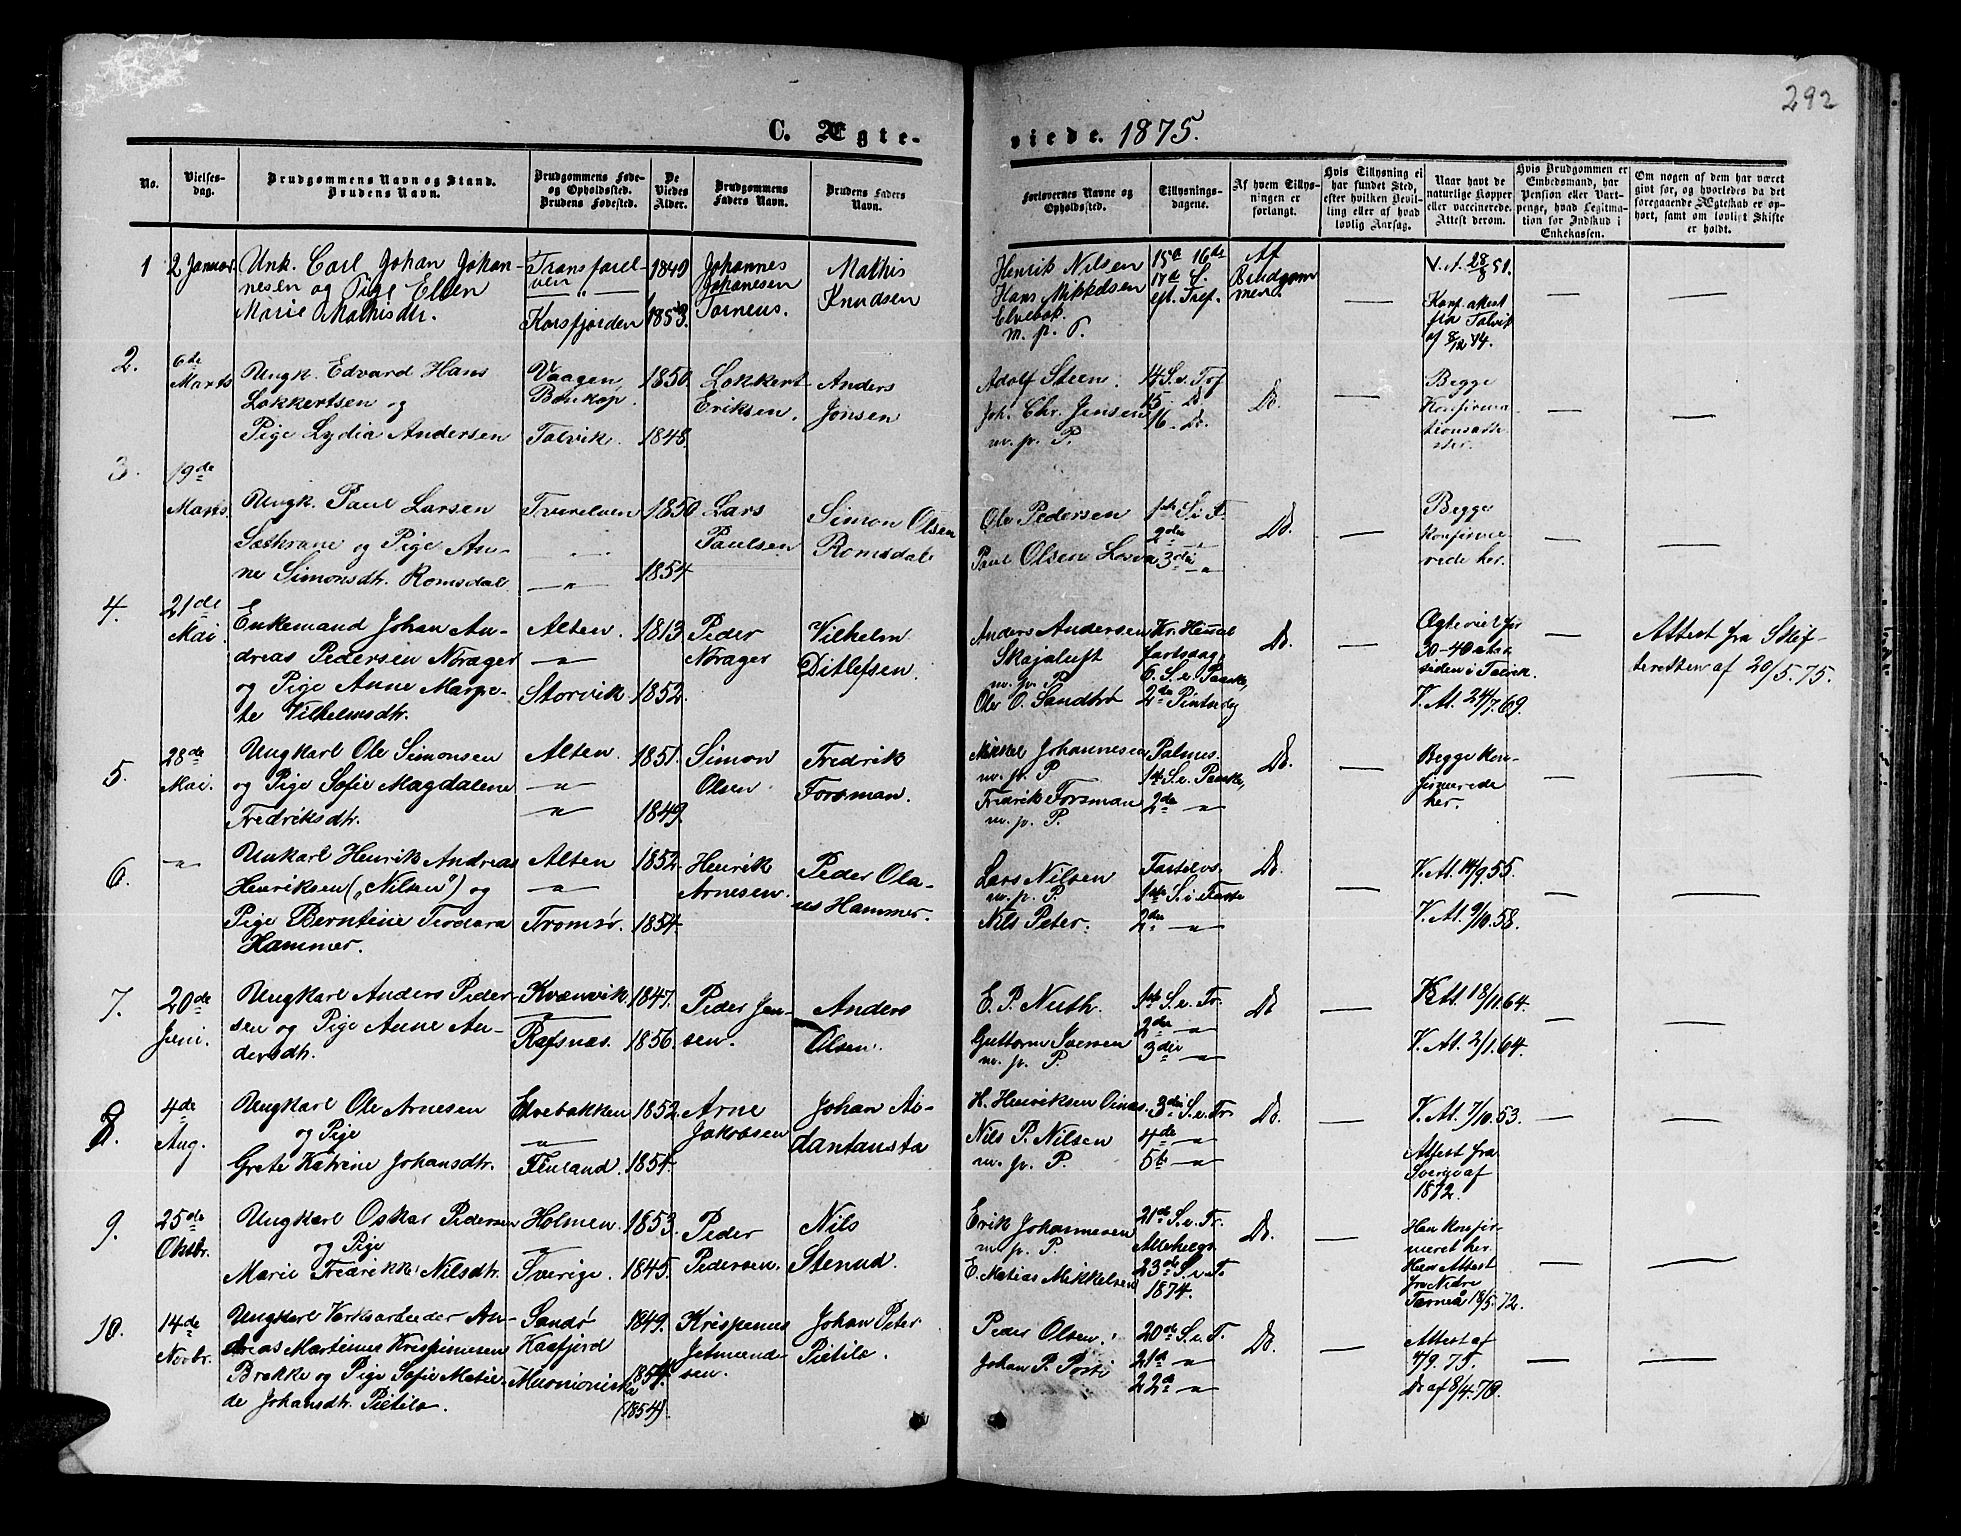 292
C. Ægte-
viede. 1875.
No.
Vielses-
dag.
Brudgommens Navn og Stand.
Brudens Navn.
Brudgommens Føde-
og Opholdssted.
Brudens Fødested.
De
Viedes
Alder.
Brudgommens
Faders Navn.
Brudens Faders
Navn.
Forlovernes Navne og
Opholdssted.
Tillysnings-
dagene.
Af hvem Tillys-
ningen er
forlangt.
Hvis Tillysning ei
har fundet Sted,
efter hvilken Bevil-
ling eller af hvad
lovlig Aarsag.
Naar havt de
naturlige Kopper
eller vaccinerede.
Attest derom.
Hvis Brudgommen er
Embedsmand, har
Pension eller Vart-
penge, hvad Legitima-
tion for Indskud i
Enkekassen.
Om nogen af dem har været
gift før, og hvorledes da det
foregaaende Ægteskab er op-
hørt, samt om lovligt Skifte
er holdt.
1
2 Januar.
Unk. Carl Johan Johan-
nesen og Pige Ellen
Marie Mathisdtr.
Transfarel-
ven
Korsfjorden
1849
1853.
Johannes
Johanesen
Torneus.
Mathis
Knudsen
Henrik Nilsen
Hans Mikkelsen
Elvebak.
m. p. P.
15de 16de
17de S.
eft. Tref.
Af
Brudgom
men.
V. A. 28/8 51.
Konf. attest
fra Talvik
af 8/12 74.
2.
6de
Marts
Ungk. Edvard Hans
Lokkertsen og
Pige Lydia Andersen
Vaagen,
Bosekop.
Talvik.
1850.
1848.
Lokkert
Eriksen.
Anders
Jonsen
Adolf Steen.
Joh. Chr. Jensen
m. p. P.
14 S. e. Tref
15. - D.
16. - D.
Do.
Begge
Konfirma-
tionsatte-
ster.
3.
19de
Marts.
Ungk. Paul Larsen
Sathrane og Pige An-
ne Simonsdtr. Romsdal
Tverelven
1850
1854
Lars
Paulsen
Simon Olsen
Romsdal.
Ole Pedersen
Paul Olsen Losva
1ste S. i F.
2den
3die "
Do.
Begge
konfirme-
rede her.
4.
21de
Mai.
Enkemand Johan An-
dreas Pedersen Norager
og Pige Anne Marge-
te Vilhelmsdtr.
Alten.
"
Storvik
1813
1852.
Peder
Norager
Vilhelm
Ditlefsen.
Anders Andersen
Skojaluft
m. p. P.
Ole O. Sandbø
Kr. Himmel
fartsdag,
6. S. e. Paaske,
2den Pintsedag
Do.
Ægteviet for
30-40 aar
siden i Talvik.
V. At. 24/7.69.
Attest fra Skif-
teretten af 20/5.75.
5.
28de
Mai.
Ungkarl Ole Simonsen
og Pige Sofie Magdalene
Fredriksdtr.
Alten.
"
"
1851.
1849.
Simon
Olsen
Fredrik
Forsman.
Mikkel Johannesen
m. p. P.
Fredrik Forsman
m. p. P.
Palmes.
1ste S. e. Paaske,
2den "
Do.
Begge kon-
firmerede
her.
6.
"
Unkarl Henrik Andreas
Henriksen ("Nilsen") og
Pige Berntine Teodora
Hammer.
Alten
"
Tromsø.
1852.
1854.
Henrik
Arnesen.
Peder Ola-
us Hammer.
Lars Nilsen
m. p. P.
Nils Peter.
Fastelvs.
1ste S. i Faste
2den "
Do.
V. At. 14/9.55.
V. At. 9/10.58.
7.
20de
Juni.
Ungkarl Anders Peder-
sen og Pige Anne An-
dersdtr.
Kvænvik
"
Rafsnæs.
1847.
1856.
Peder Jen-
sen.
Anders
Olsen.
E. P. Nuth.
Guttorm Iversen
m. p. P.
1ste S. e. Tr.
2den "
3die "
Do
V. At. 18/11.64.
V. At. 2/1.64.
8.
4de
Aug.
Ungkarl Ole Arnesen
og Pige
Grete Katrine Johansdtr.
Elvebakken
"
Finland.
1852.
1854.
Arne
Jakobsen
Johan Ai-
dantausta
H. Henriksen Oinas
Nils P. Nilsen
m. p. P.
3die S. e. Tr.
4de "
5te "
Do.
V. At. 7/10.53.
Attest fra
Sverge af
1872.
9.
25de
Oktbr.
Ungkarl Oskar Pedersen
og Pige
Marie Fredrikke Nilsdtr.
Holmen.
"
Sverige.
1853.
1845.
Peder
Pedersen.
Nils
Stenud.
Erik Johannesen
m. p. P.
E. Matias Mikkelsen
21de S. e. Tr.
Allehelgs.
23de S. e. T.
1874.
Do.
Han konfir-
meret her.
Hun Attest
fra Nedre
Torneå 18/5.72.
10.
14de
Novbr.
Ungkarl Verksarbeider An-
dreas Martinus Krispinusen
Brække og Pige Sofie Matil-
de Johansdtr. Pietila.
Sandø
Kaafjord
Muonionis-
ka
1849.
1854.
(1854).
Krispenus
Jetmund-
sen.
Johan Peter
Pietila.
Peder Olsen.
Johan P. Porti
20de S. e. T.
21de "
22de "
Do.
Attest af
4/9.75.
Do af 8/4.70.